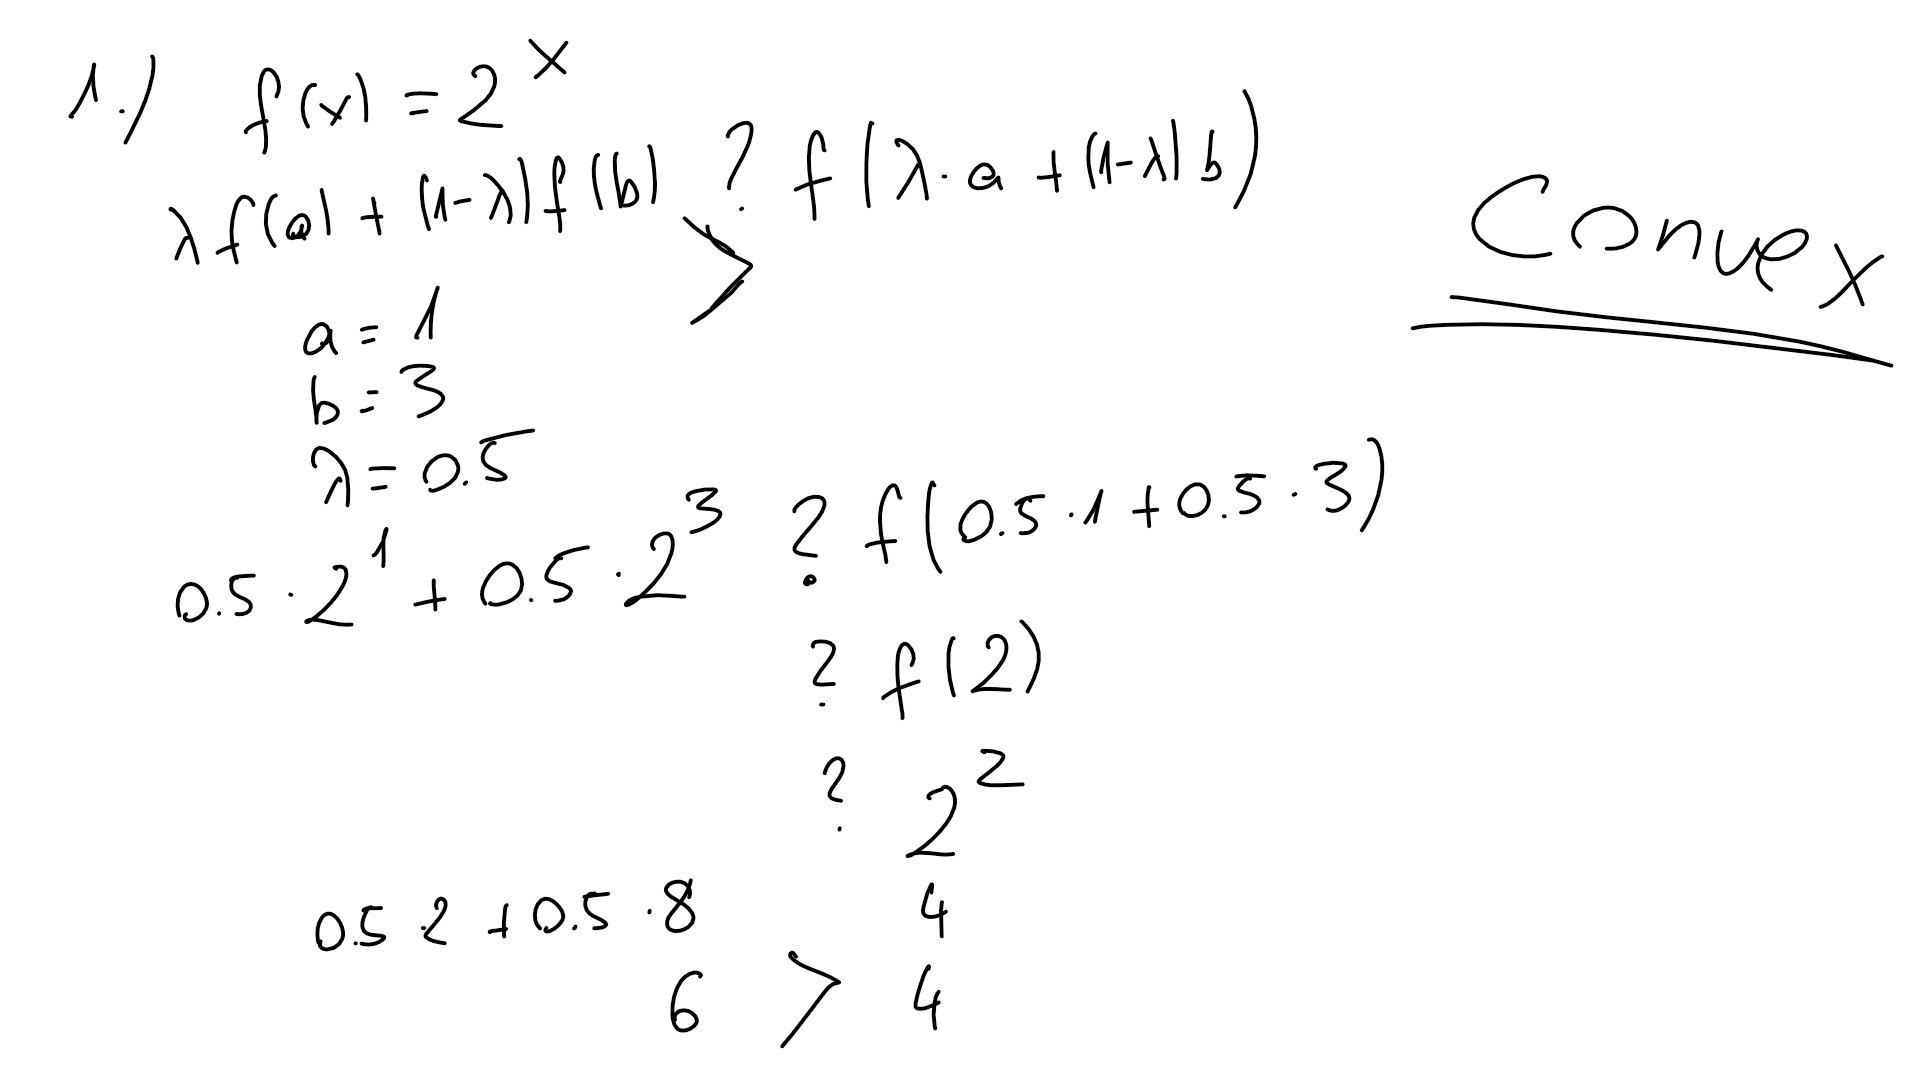 1.) f(x) = 2^x
λf(a) + (1-λ)f(b) ? f(λ·a + (1-λ)b)
>
Convex
a = 1
b = 3
λ = 0.5
0.5 · 2^1 + 0.5 · 2^3 ? f(0.5 · 1 + 0.5 · 3)
? f(2)
? 2^2
0.5 · 2 + 0.5 · 8 4
6 > 4